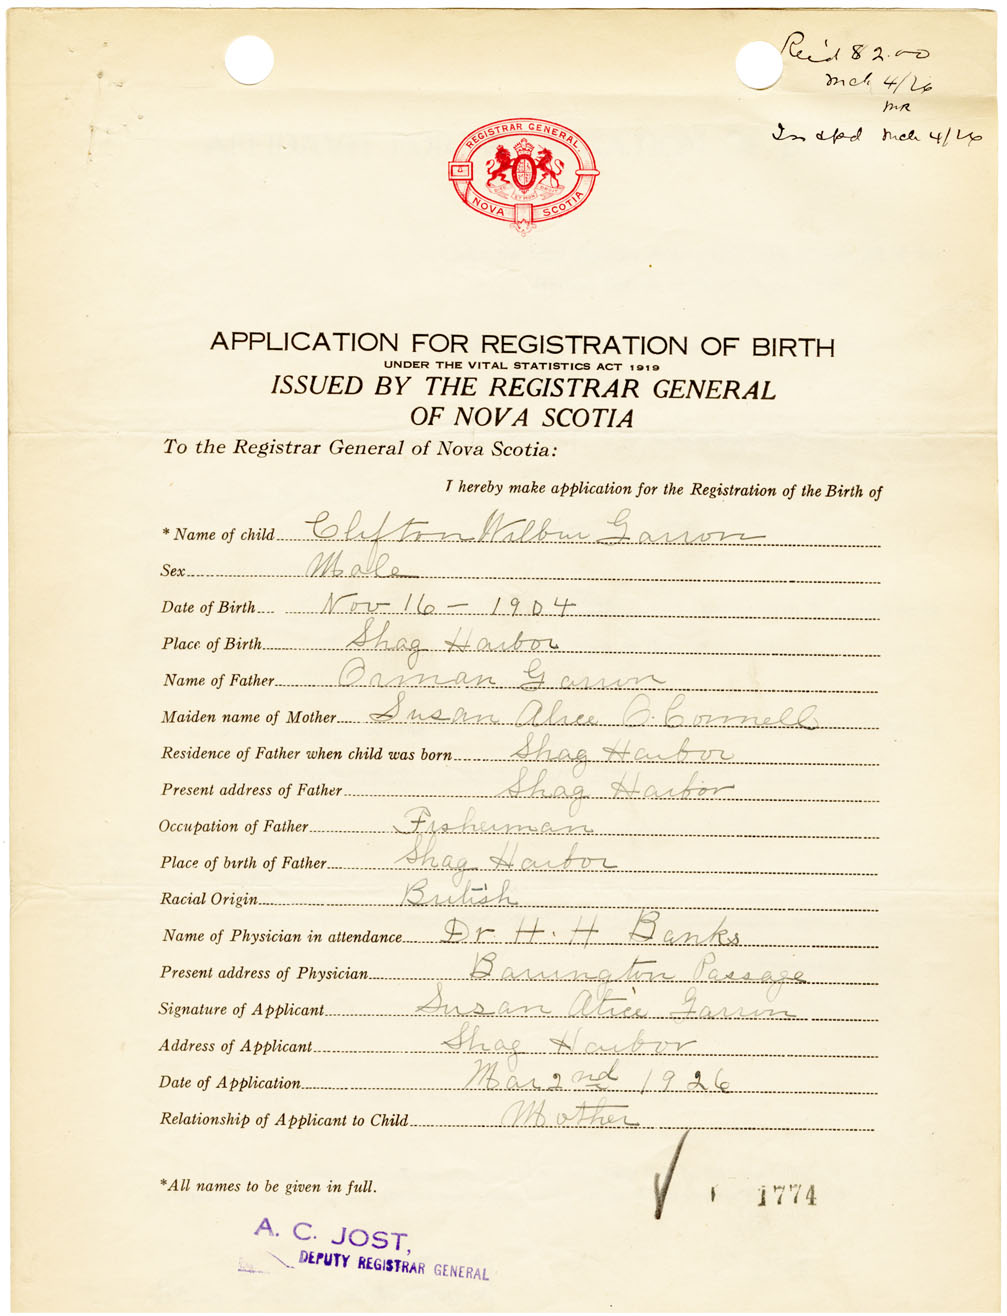 Rec'd $2.00
Mch 4/26
MR
Insptd Mch 4/26
REGISTRAR GENERAL.
NOVA SCOTIA
APPLICATION FOR REGISTRATION OF BIRTH
UNDER THE VITAL STATISTICS ACT 1919
ISSUED BY THE REGISTRAR GENERAL
OF NOVA SCOTIA
To the Registrar General of Nova Scotia:
I hereby make application for the Registration of the Birth of
* Name of child Clifton Wilbur Garron
Sex Male
Date of Birth Nov 16 - 1904
Place of Birth Shag Harbor
Name of Father Orman Garron
Maiden name of Mother Susan Alice O.Connell
Residence of Father when child was born Shag Harbor
Present address of Father Shag Harbor
Occupation of Father Fisherman
Place of birth of Father Shag Harbor
Racial Origin British
Name of Physician in attendance Dr H. H Banks
Present address of Physician Barrington Passage
Signature of Applicant Susan Alice Garron
Address of Applicant Shag Harbor
Date of Application Mar 2nd 1926
Relationship of Applicant to Child Mother
*All names to be given in full.
1774
A. C. JOST,
DEPUTY REGISTRAR GENERAL